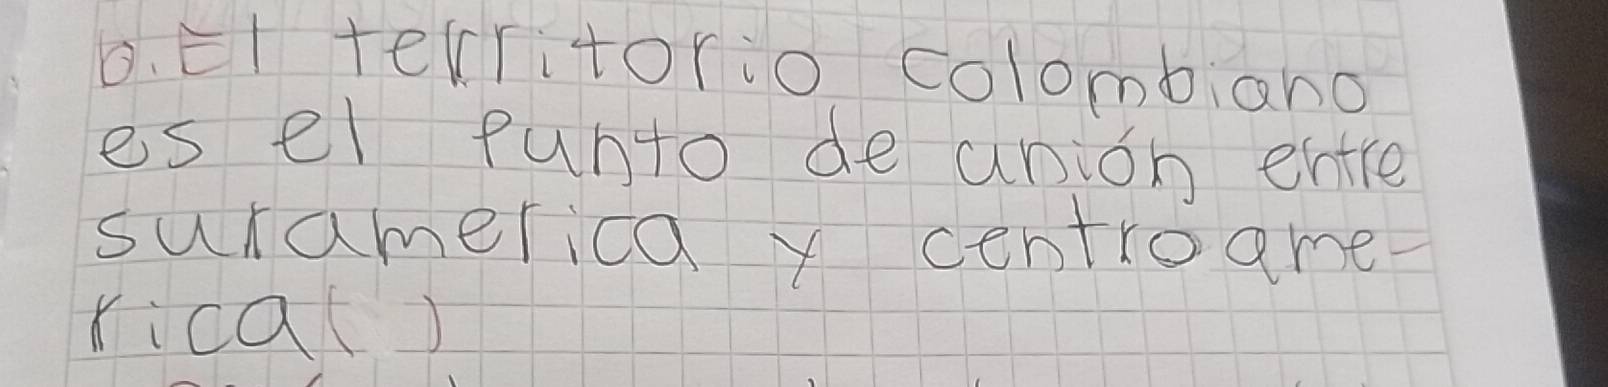 b. El territorio colombiano
es el punto de unión entre
suramerica y centroame-
rica( )